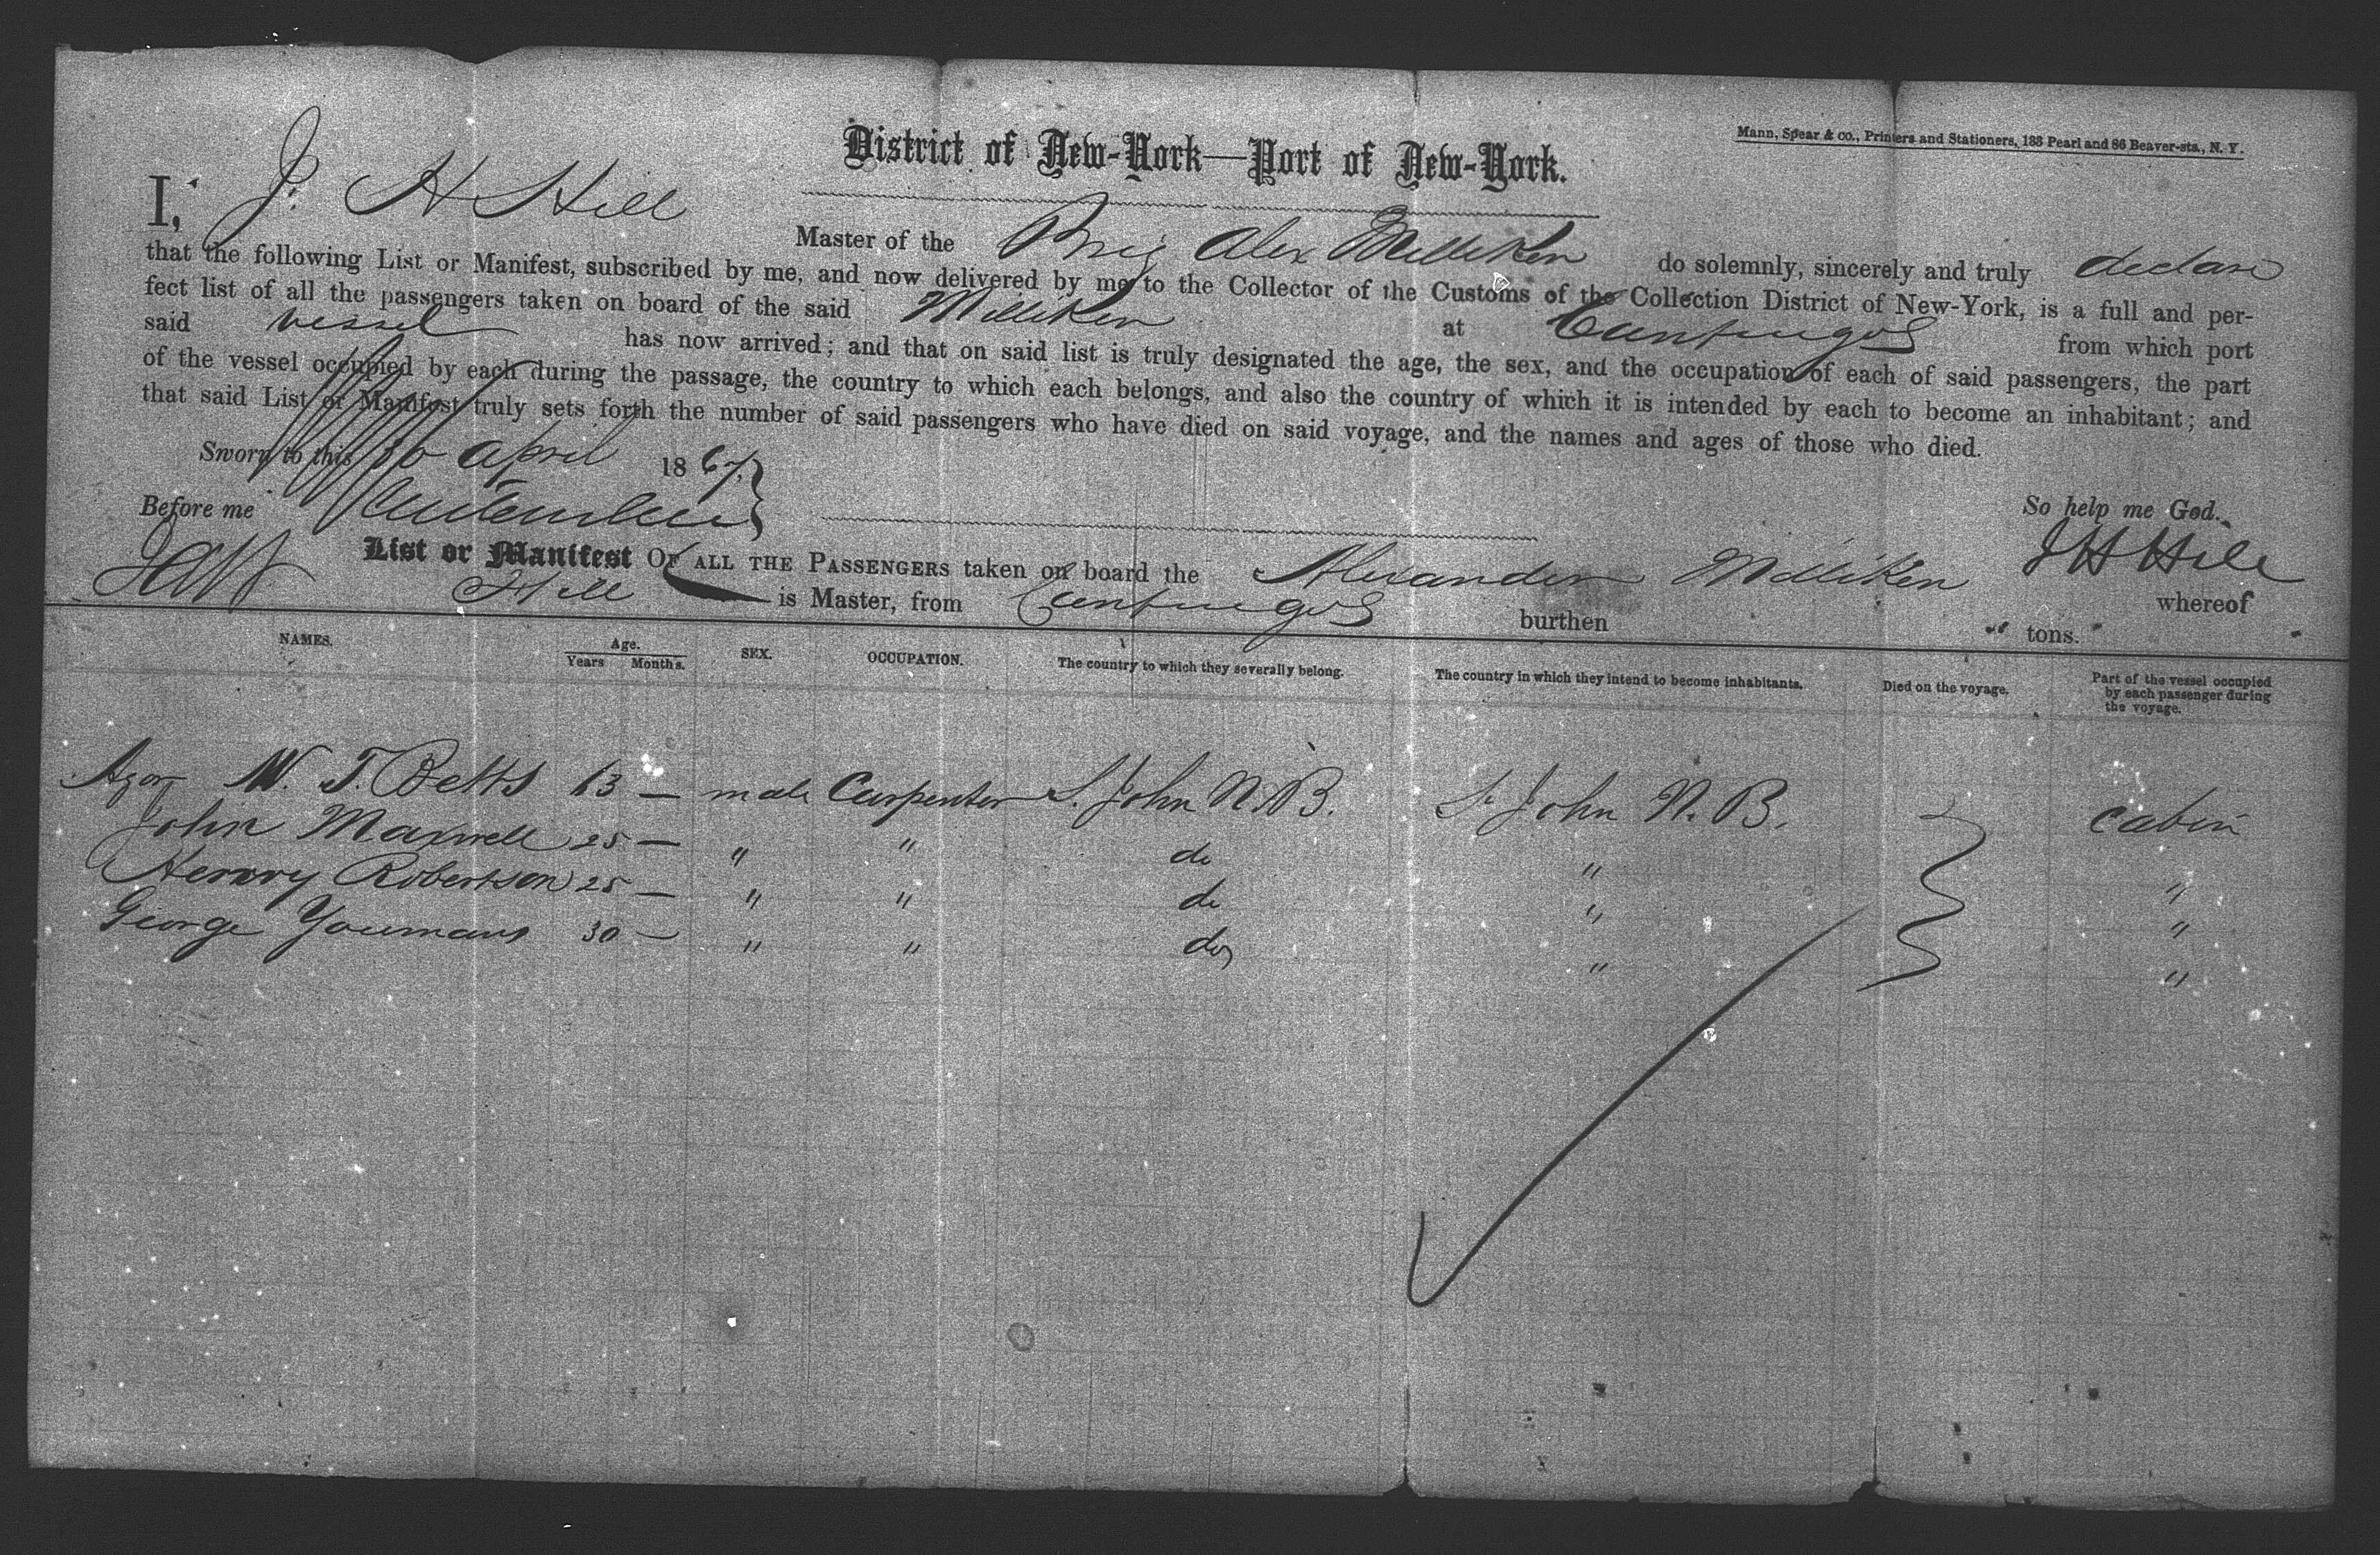 Mann, Spear & co., Printers and Stationers, 133 Pearl and 86 Beaver-sts., N. Y.
District of New-York—Port of New-York.
I, J. H Hill Master of the Brig Alex Milliken do solemnly, sincerely and truly declare
that the following List or Manifest, subscribed by me, and now delivered by me to the Collector of the Customs of the Collection District of New-York, is a full and per-
fect list of all the passengers taken on board of the said Milliken at from which port
said vessel has now arrived; and that on said list is truly designated the age, the sex, and the occupation of each of said passengers, the part
of the vessel occupied by each during the passage, the country to which each belongs, and also the country of which it is intended by each to become an inhabitant; and
that said List or Manifest truly sets forth the number of said passengers who have died on said voyage, and the names and ages of those who died.
Sworn to this 16 April 1867
So help me God.
Before me
J H Hill
List or Manifest OF ALL THE PASSENGERS taken on board the Alexander Milliken whereof
Hill is Master, from burthen " tons. "
NAMES. Age. Years Months. SEX. OCCUPATION. The country to which they severally belong. The country in which they intend to become inhabitants. Died on the voyage. Part of the vessel occupied by each passenger during the voyage.
Azor W. T. Betts 63 — male Carpenter St. John N.B. St John N.B. cabin
John Maxwell 25 — " " do " "
Henry Robertson 25 — " " do " "
George Youmans 30 — " " do " "